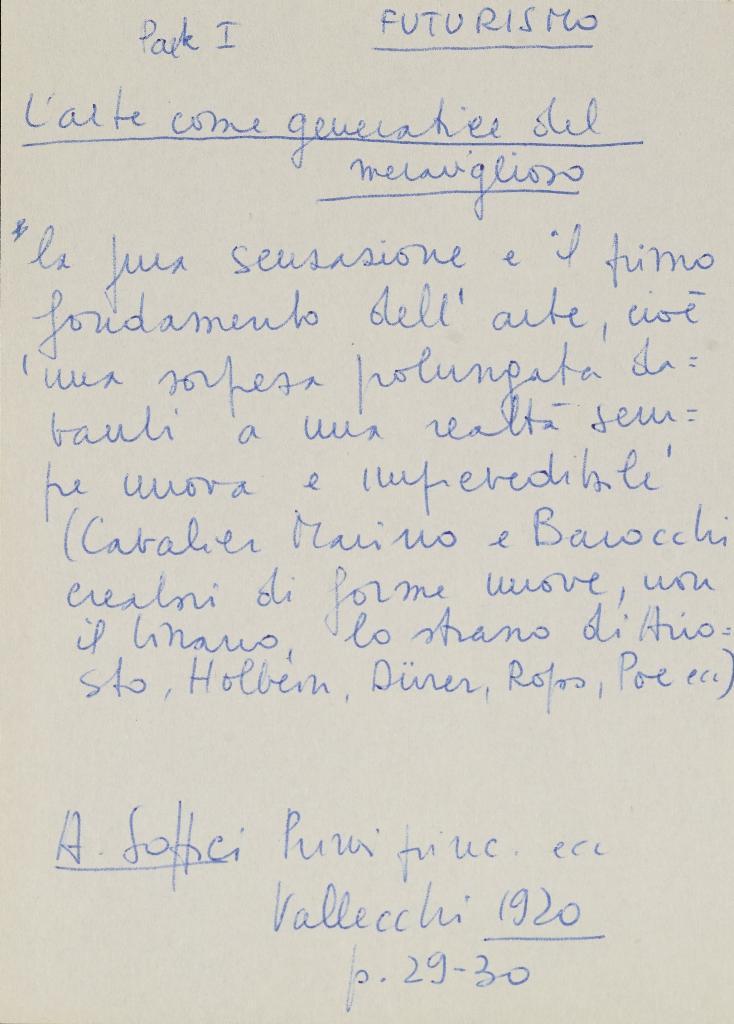 Park I FUTURISMO
L'arte come generatrice del
meraviglioso
"la pura sensazione e il primo
fondamento dell'arte, cioè
'una sorpresa prolungata da=
vanti a una realtà sem=
pre nuova e imprevedibile'
(Cavalier Marino e Barocchi
creatori di forme nuove, non
il bizzarro, lo strano di Ario=
sto, Holbein, Dürer, Rops, Poe ecc)
A. Soffici Primi princ. ecc
Vallecchi 1920
p. 29-30